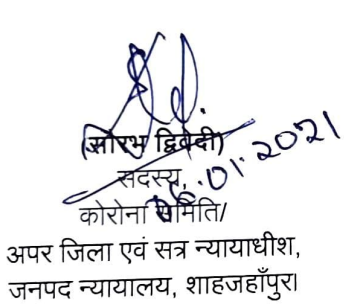 (सौरभ द्विवेदी)
सदस्य,
06.01.2021
कोरोना समिति/
अपर जिला एवं सत्र न्यायाधीश,
जनपद न्यायालय, शाहजहाँपुर।